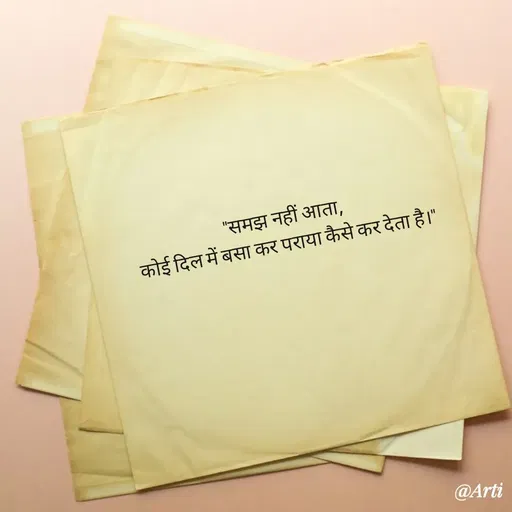 "समझ नहीं आता,
कोई दिल में बसा कर पराया कैसे कर देता है।"
@Arti